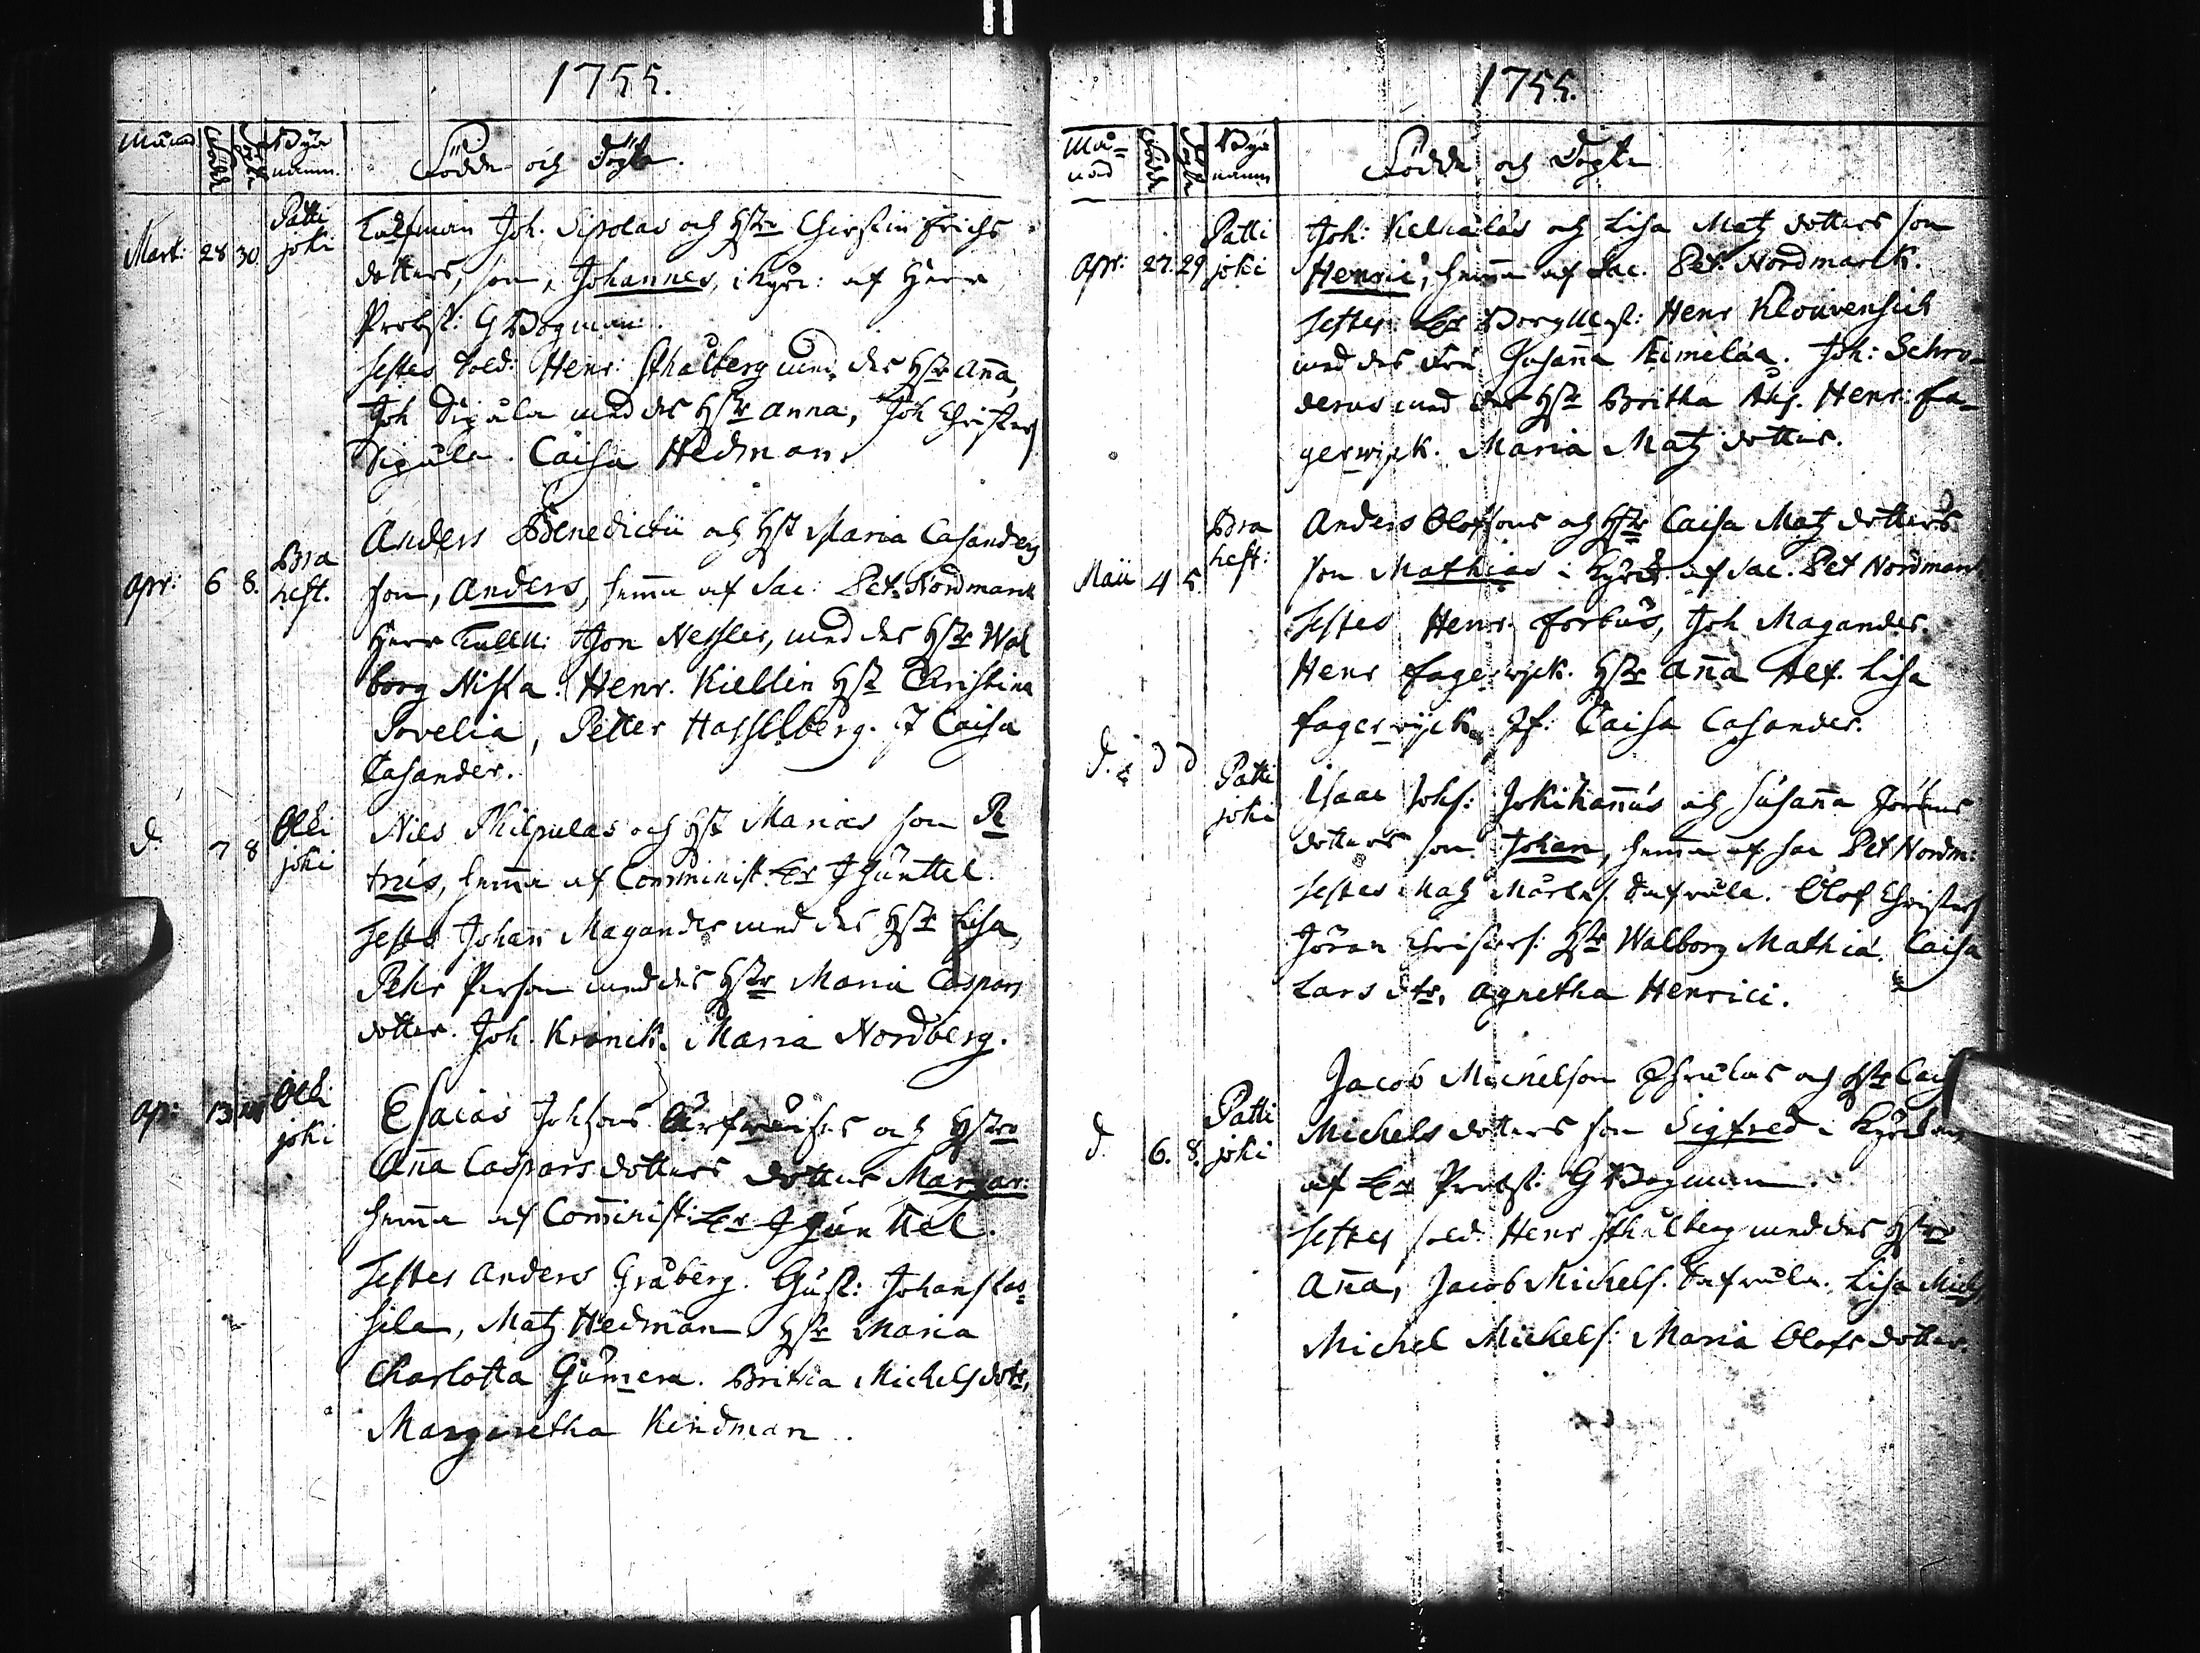 1755.
Månad Född Döpte Byanamn. Födde och Döpte.
Mart: 28 30 Pattijoki
Joh. Sipolas och Hstr Chirstin Erichs
dotters, son, Johannes, i Kyrk: af Herr
Probst: G Bogman.
testes Sold: Henr: Sthålberg med des Hstr Anna,
Joh Sigåla med des Hstr Anna, Joh Christers
Sigåla. Caisa Hedman.
Apr: 6 8. Brahest.
Anders Benedictii och Hst Maria Casanders
son, Anders, hemma af Sac: Pet: Nordmarck
Herr Jon Nessler, med des Hstr Wal
borg Nissa. Henr. Kiellin Hstr Christina
Povelia, Petter Hasselberg. J Caisa
Casander.
d. 7 8 Ollijoki
Nils Philpulas och Hst Marias son Pe
trus, hemma af Comminist. Er J Günttel.
testes Johan Magander med des Hstr Lisa,
Pehr Person med des Hstr Maria Caspars
dotter. Joh. Kranck. Maria Nordberg.
Ap: 13 Ollijoki
Esaias Johsons och Hstrs
Anna Caspars dotters dotter Margar:
hemma af Comminist: Er J Günttel.
testes Anders Gråberg. Gust: Johans
sila, Matz Hedman Hstr Maria
Charlotta Gumera. Britha Michels dotr,
Margaretha Kindman.
1755.
Månad Född Döpte Byanamn Födde och Döpte
Apr: 27. 29 Pattijoki
Joh: Kelhålas och Lisa Matz dotters son
Henric, hemma af Sac. Pet: Nordmarck.
testes: Er Borgmest: Henr Klouvensich
med des Fru Susanna Kimelaa. Joh: Schro-
derus med des Hstr Britha Åkes. Henr: Fa-
gerwijck. Maria Matz dotter.
Maii 4 5. Brahest:
Anders Olofsons och Hstrs Caisa Matz dotters
son Mathias i Kyrck: af Sac. Pet Nordmarck
testes Henr Forbus, Joh Magander.
Henr Fagerwijck. Hstr Anna Alex. Lisa
Fagerwijck. Jf: Caisa Casander.
d. d d Pattijoki
Isaac Johs: Jokikannus och Susanna Jörans
dotters son Johan, hemma af Sac Pet Nordm:
testes Matz Mårtens. Olof Christers
Jöran Christers: Hstr Walborg Mathiæ. Caisa
Lars dotr, Agnetha Henrici.
d. 6. 8. Pattijoki
Jacob Michelson och Hstr Caisa
Michels dotters son Sigfred i Kyrckan
af Er Probst: G Bogman.
testes sold: Henr Sthålberg med des Hstr
Anna, Jacob Michels. Lisa Mich
Michel Michels: Maria Olofs dotter.